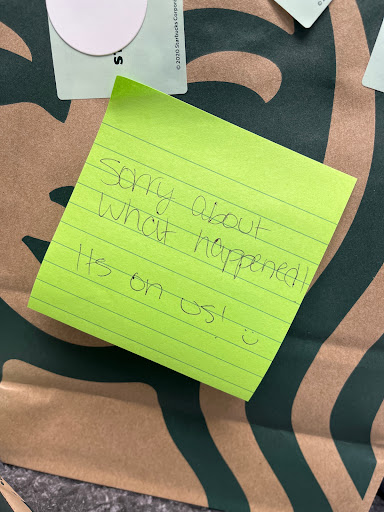 © 2020 Starbucks Corpora
Sorry about
what happened!!
Its on us! ☺